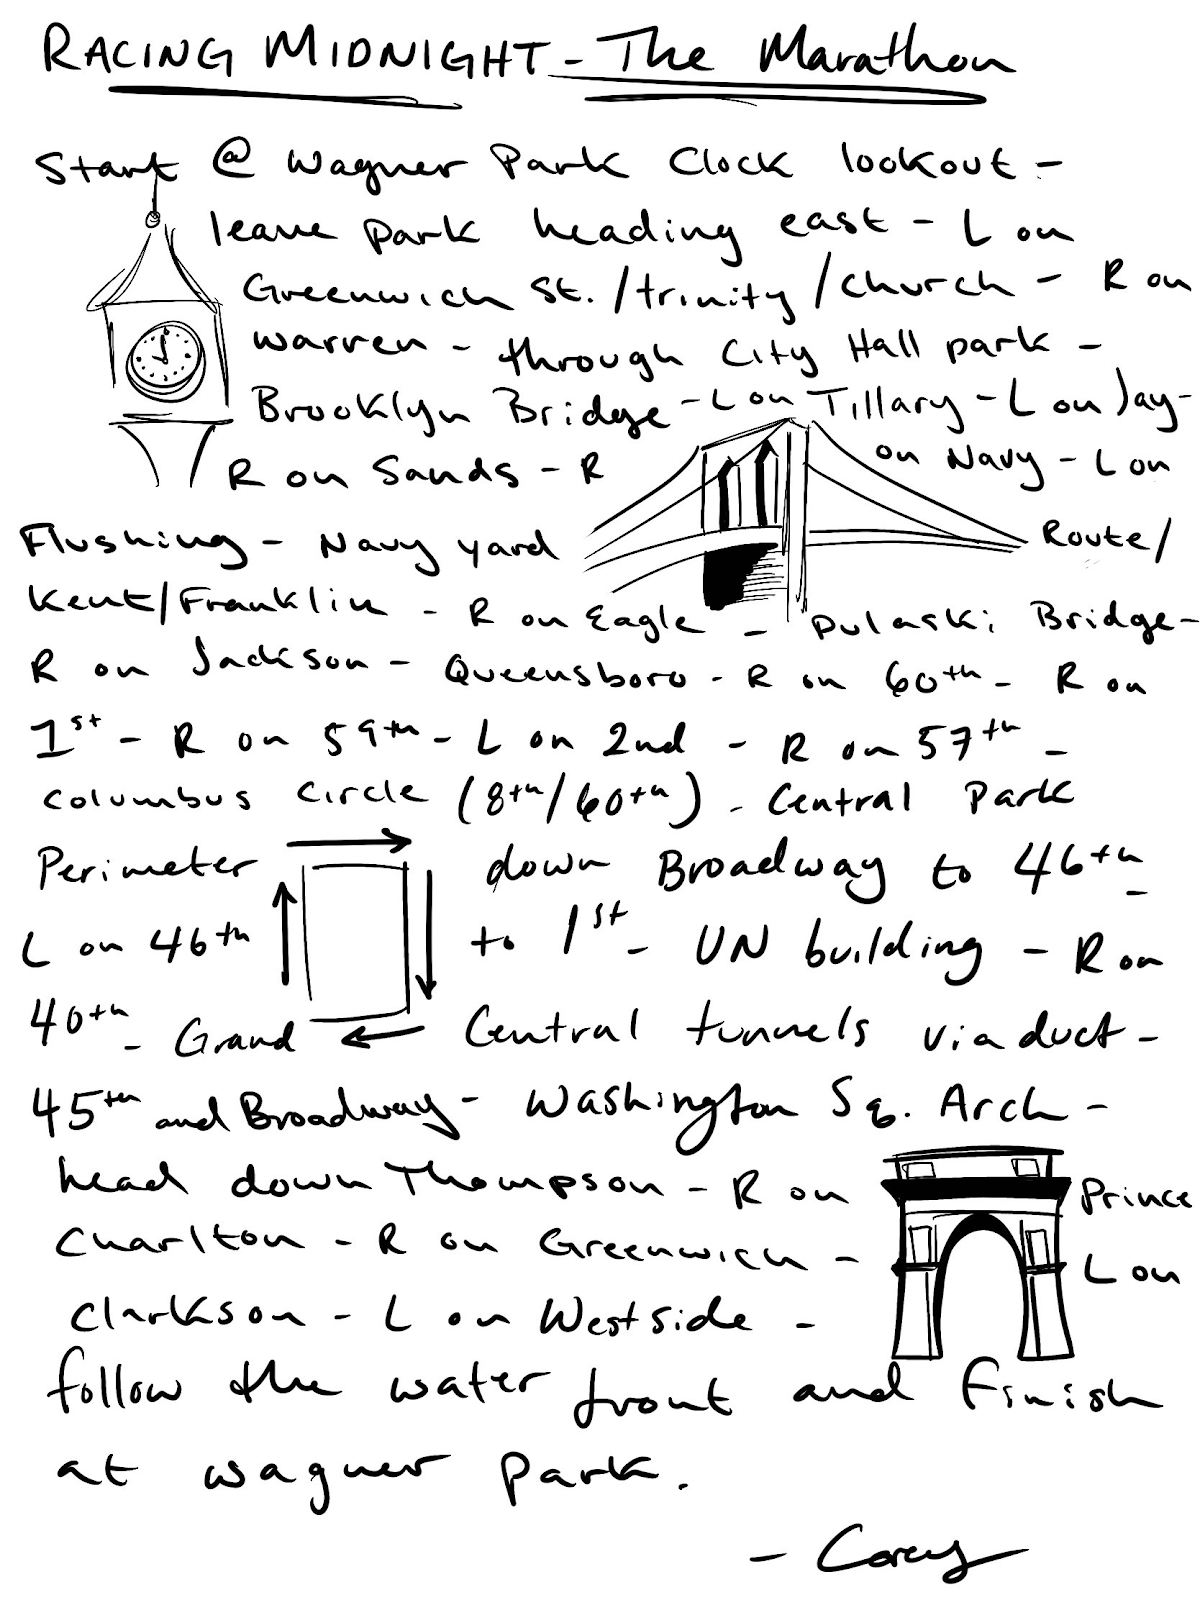 RACING MIDNIGHT - The Marathon
Start @ Wagner Park Clock lookout -
leave park heading east - L on
Greenwich St. / trinity / church - R on
Warren - through City Hall park -
Brooklyn Bridge - L on Tillary - L on Jay -
R on Sands - R on Navy - L on
Flushing - Navy yard Route /
Kent / Franklin - R on Eagle - Pulaski Bridge -
R on Jackson - Queensboro - R on 60th - R on
1st - R on 59th - L on 2nd - R on 57th -
Columbus Circle (8th/60th) - Central Park
Perimeter down Broadway to 46th -
L on 46th to 1st - UN building - R on
40th - Grand Central tunnels viaduct -
45th and Broadway - Washington Sq. Arch -
head down Thompson - R on Prince
Charlton - R on Greenwich - L on
Clarkson - L on Westside -
follow the water front and finish
at Wagner Park.
- Corey